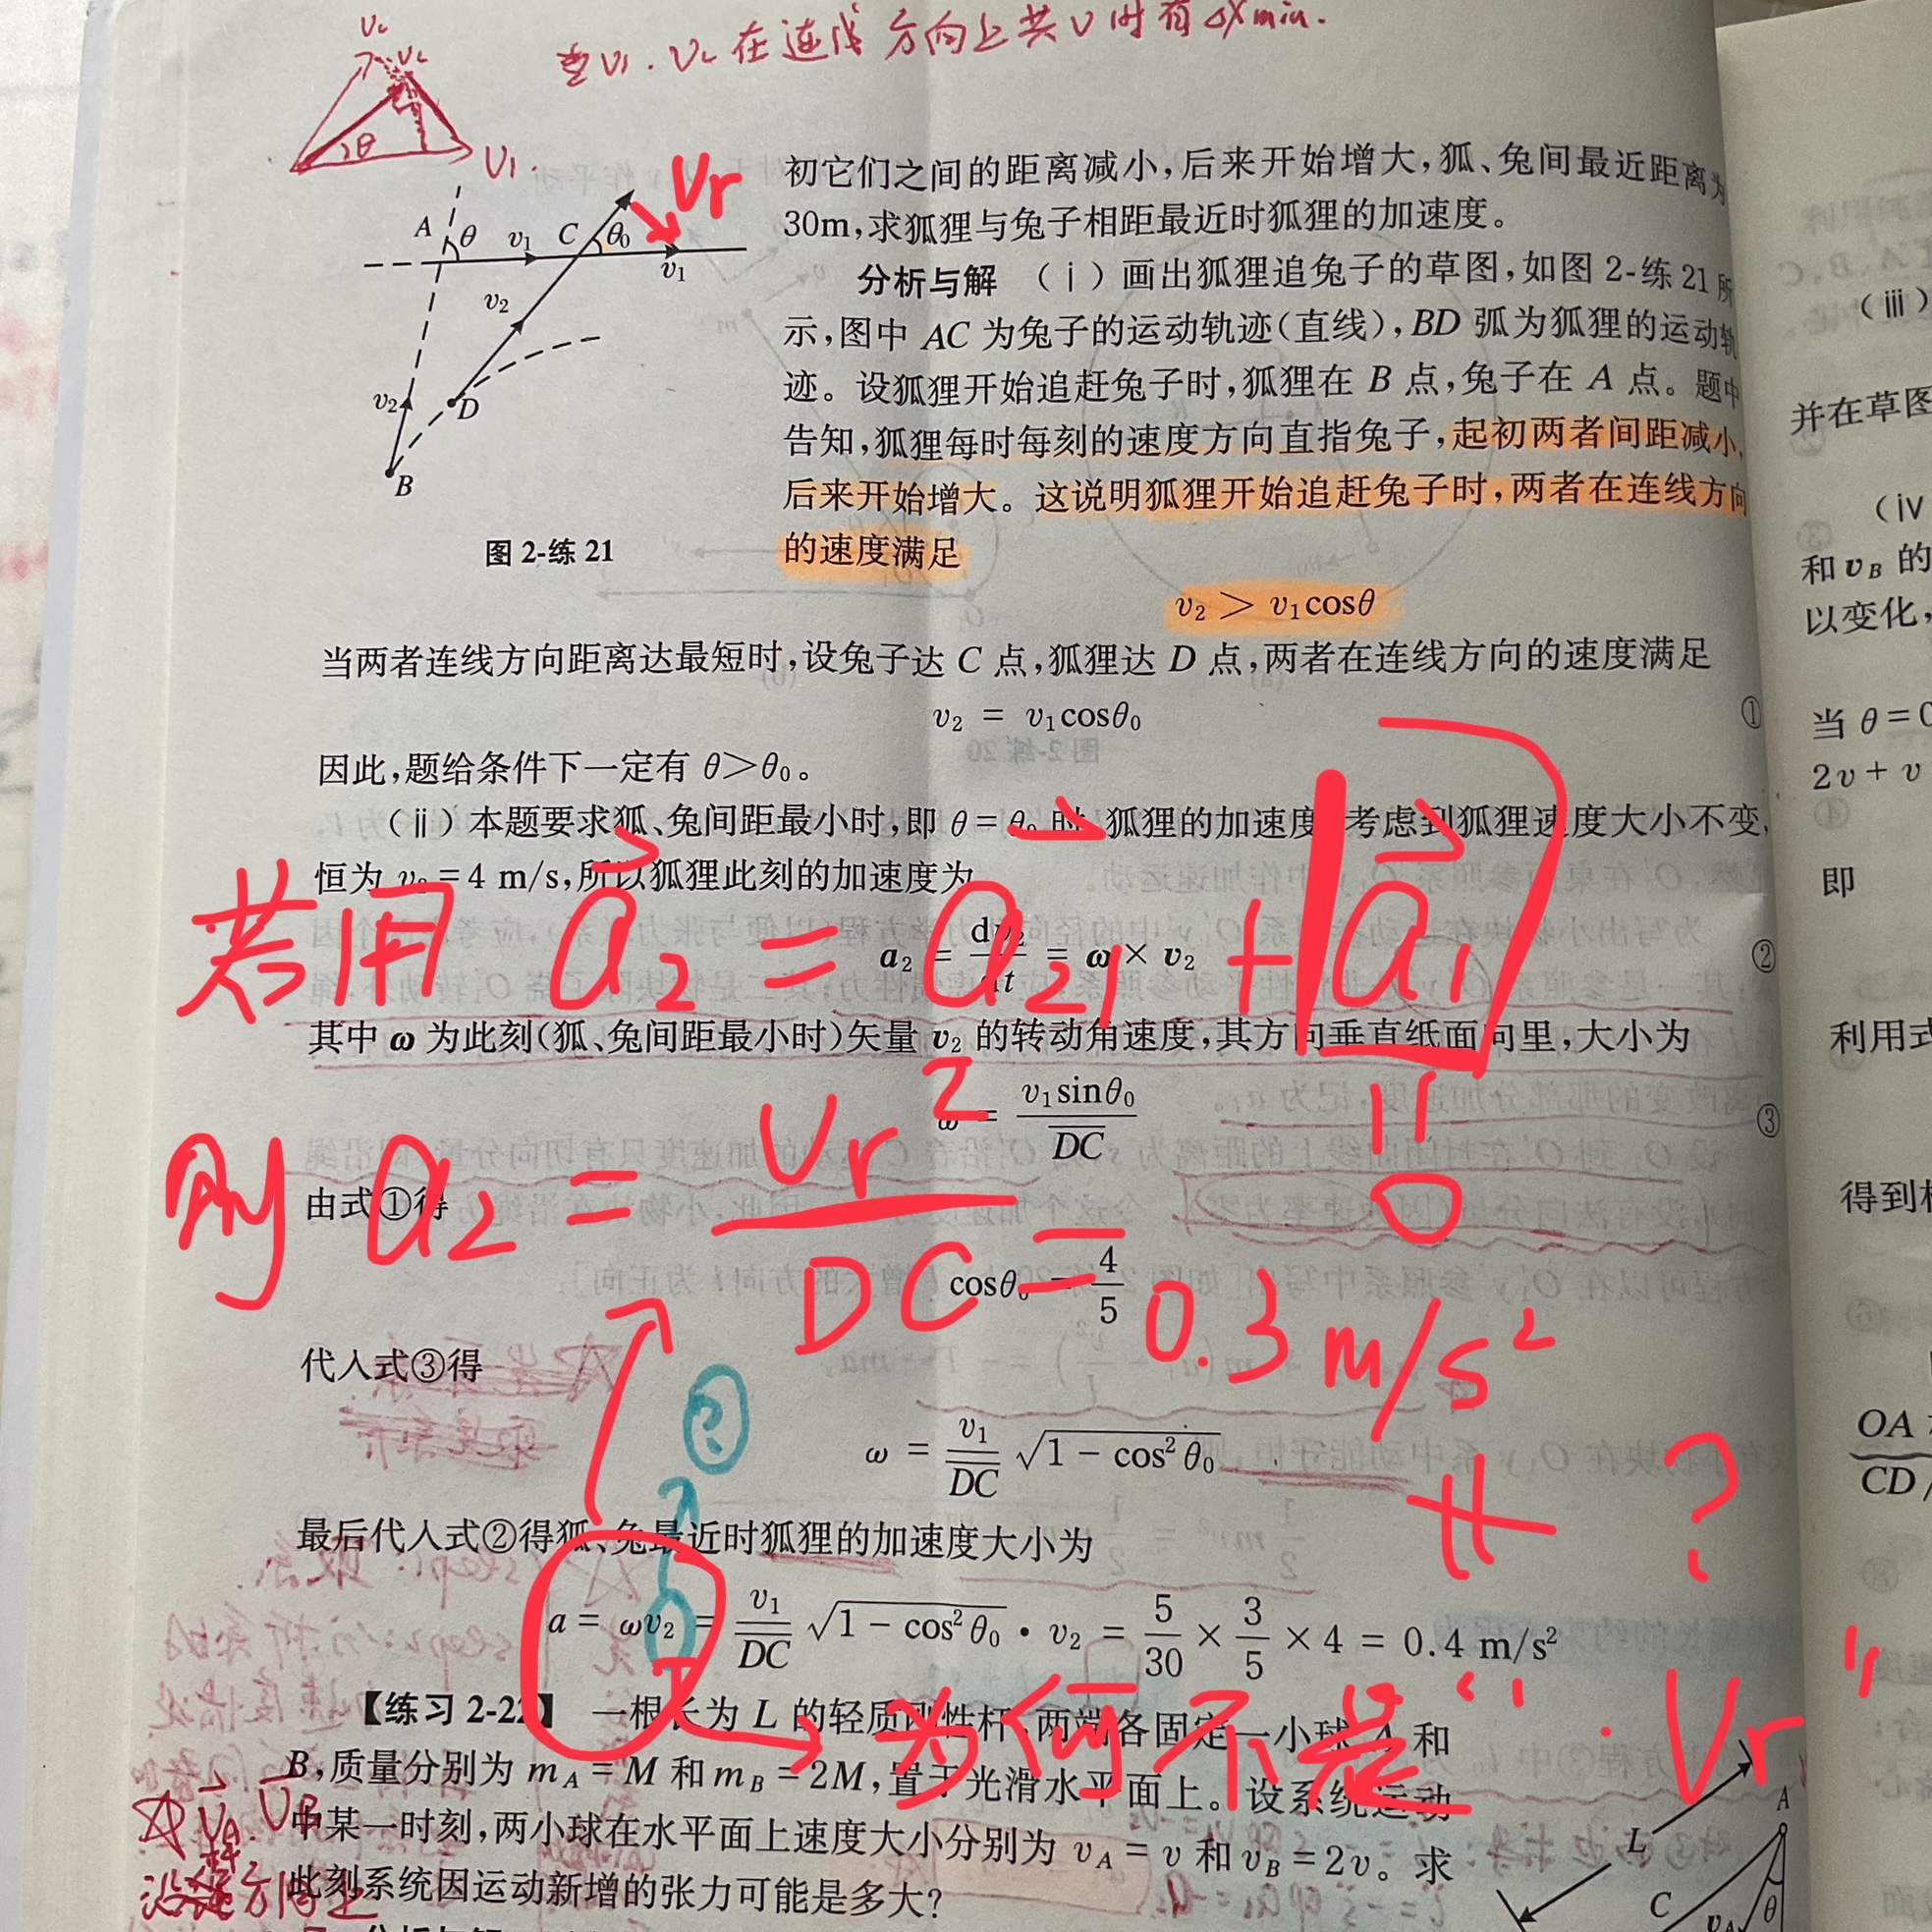 当 v₁. v₂ 在连线方向上共v时有 Δxmin.
v₂
v₂
θ
v₁.
vr
A θ v₁ C θ₀ v₁
v₂
v₂ D
B
图 2-练 21
初它们之间的距离减小,后来开始增大,狐、兔间最近距离为
30m,求狐狸与兔子相距最近时狐狸的加速度。
分析与解 (ⅰ)画出狐狸追兔子的草图,如图 2-练 21 所
示,图中 AC 为兔子的运动轨迹(直线),BD 弧为狐狸的运动轨
迹。设狐狸开始追赶兔子时,狐狸在 B 点,兔子在 A 点。题中
告知,狐狸每时每刻的速度方向直指兔子,起初两者间距减小,
后来开始增大。这说明狐狸开始追赶兔子时,两者在连线方向
的速度满足
v₂ > v₁cosθ
当两者连线方向距离达最短时,设兔子达 C 点,狐狸达 D 点,两者在连线方向的速度满足
v₂ = v₁cosθ₀ ①
因此,题给条件下一定有 θ>θ₀。
(ⅱ)本题要求狐、兔间距最小时,即 θ = θ₀ 时,狐狸的加速度。考虑到狐狸速度大小不变,
恒为 v₂ = 4 m/s,所以狐狸此刻的加速度为
若用 a⃗₂ = a⃗₂₁ + a⃗₁
a₂ = dv₂/dt = ω × v₂ ②
其中 ω 为此刻(狐、兔间距最小时)矢量 v₂ 的转动角速度,其方向垂直纸面向里,大小为
ω = v₁sinθ₀/DC ③
则 a₂ = vr²/DC = 0.3 m/s²
0
由式①得
cosθ₀ = 4/5
代入式③得
?
ω = v₁/DC √(1 − cos²θ₀)
≠ ?
最后代入式②得狐、兔最近时狐狸的加速度大小为
a = ωv₂ = v₁/DC √(1 − cos²θ₀) • v₂ = 5/30 × 3/5 × 4 = 0.4 m/s²
为何不是“· vr”
【练习 2-22】 一根长为 L 的轻质刚性杆,两端各固定一小球 A 和
B,质量分别为 mA = M 和 mB = 2M,置于光滑水平面上。设系统运动
中某一时刻,两小球在水平面上速度大小分别为 vA = v 和 vB = 2v。求
此刻系统因运动新增的张力可能是多大?
vA. vB
A
L
C θ
vA
(ⅲ)
并在草图
(ⅳ
和 vB 的
以变化,
当 θ = 0
2v + v
即
利用式
得到
OA
CD/